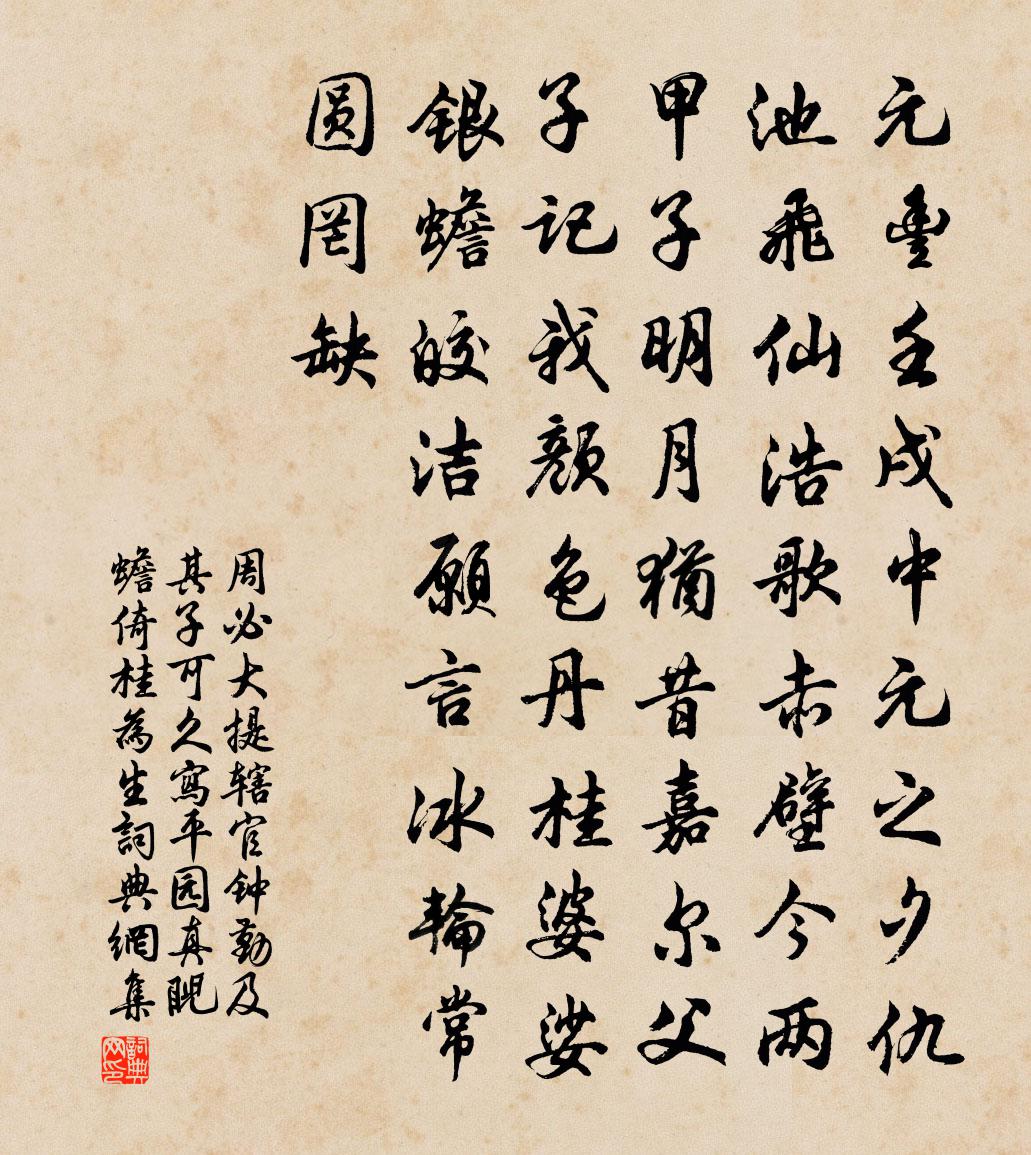 元豊壬戌中元之夕仇
池飛仙浩歌赤壁今两
甲子明月猶昔嘉尔父
子记我颜色丹桂婆娑
銀蟾皎洁願言冰輪常
圆罔缺
周必大提辖官钟勤及
其子可久寫平园真睨
蟾倚桂為生詞典網集
詞典
网印